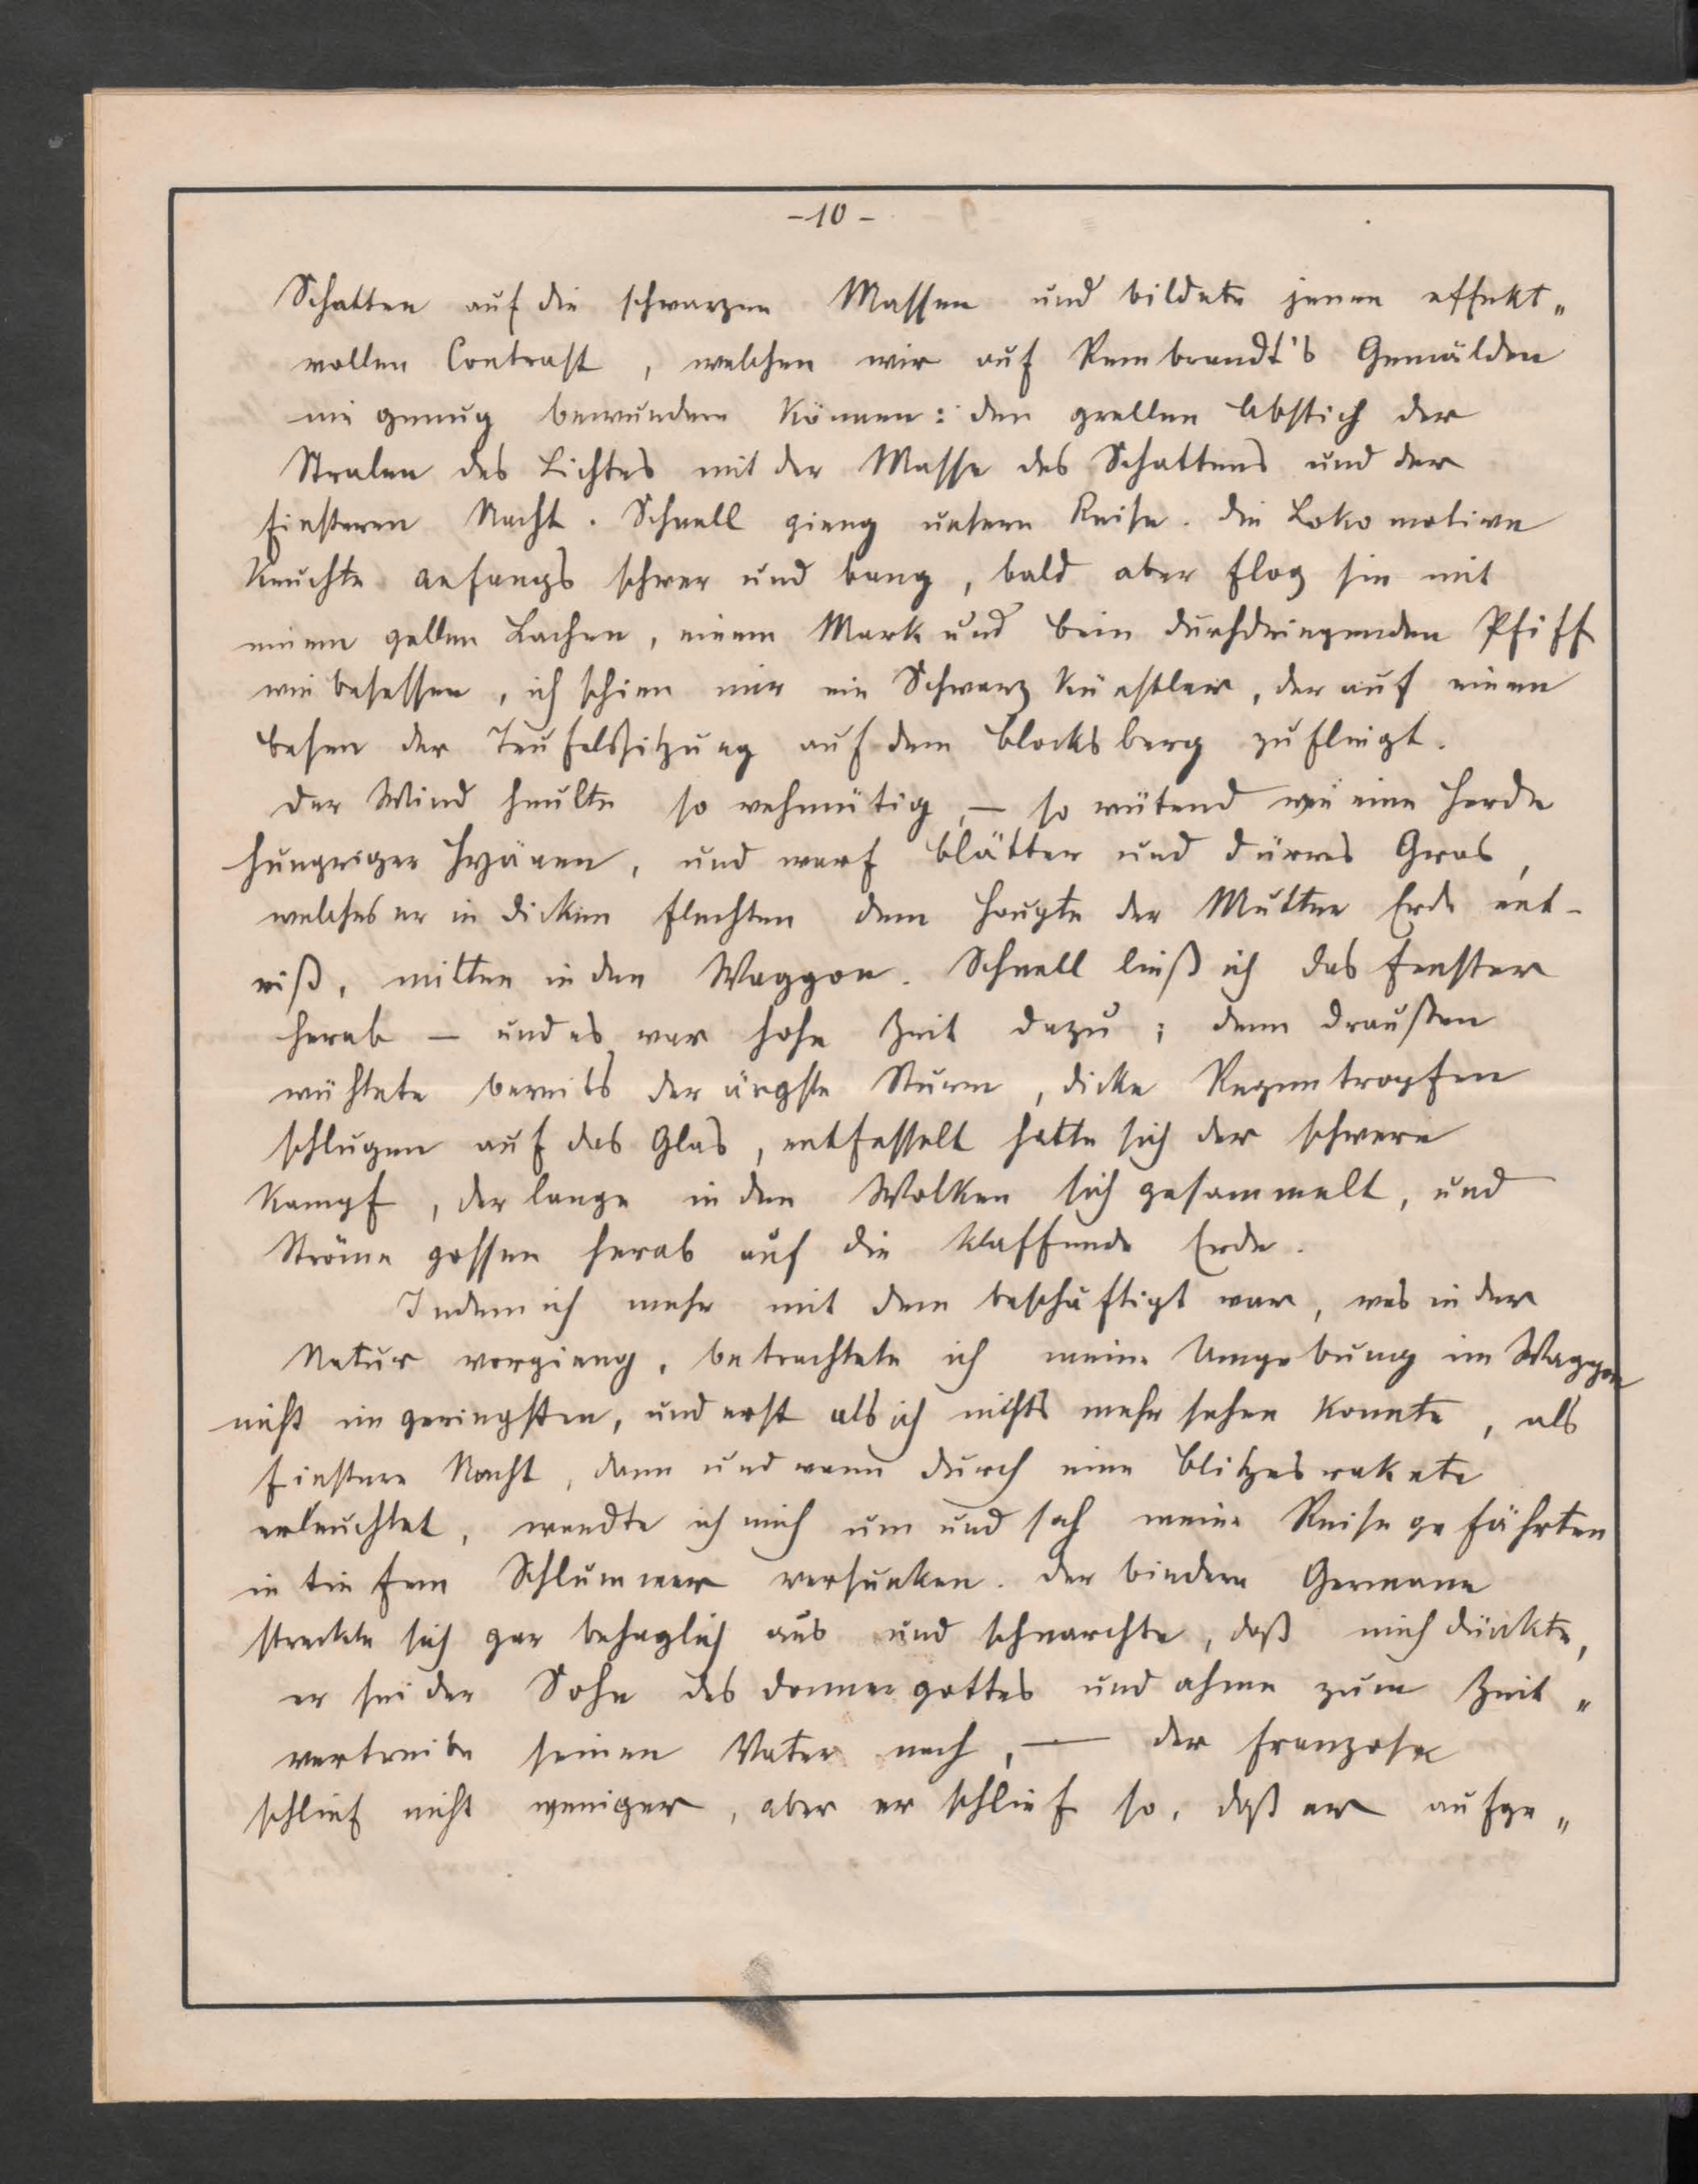 -10-
Schatten auf die schwarzen Massen und bildete jenen effekt„
vollen Contrast, welchen wir auf Rembrandt's Gemälden
nie genug bewundern können: den grellen Abstich der
Stralen des Lichtes mit der Masse des Schattens und der
finsteren Nacht. Schnell gieng unsere Reise. Die Lokomotive
keuchte anfangs schwer und bang, bald aber flog sie mit
einem gellen Lachen, einem Mark und Bein durchdringenden Pfiff
wie besessen, ich schien mir ein Schwarzkünstler, der auf einem
Besen der Teufelssitzung auf dem Blocksberg zufliegt.
Der Wind heulte so wehmütig, – so wütend wie eine Herde
hungriger Hyänen, und warf Blätter und dürres Gras,
welches er in dicken Flechten dem Haupte der Mutter Erde ent-
riß, mitten in den Waggon. Schnell ließ ich das Fenster
herab – und es war hohe Zeit dazu; denn draußen
wühtete bereits der ärgste Sturm, dicke Regentropfen
schlugen auf das Glas, entfesselt hatte sich der schwere
Kampf, der lange in den Wolken sich gesammelt, und
Ströme gossen herab auf die klaffende Erde.
Indem ich mehr mit dem beschäftigt war, was in der
Natur vorgieng, betrachtete ich meine Umgebung im Waggon
nicht im geringsten, und erst als ich nichts mehr sehen konnte, als
finstere Nacht, dann und wann durch eine Blitzesrakete
erleuchtet, wandte ich mich um und sah meine Reisegefährten
in tiefem Schlummer versunken. Der biedere Germane
streckte sich gar behaglich aus und schnarchte, daß mich dünkte,
er sei der Sohn des Donnergottes und ahme zum Zeit„
vertreibe seinen Vater nach, – der Franzose
schlief nicht weniger, aber er schlief so, daß er aufge„